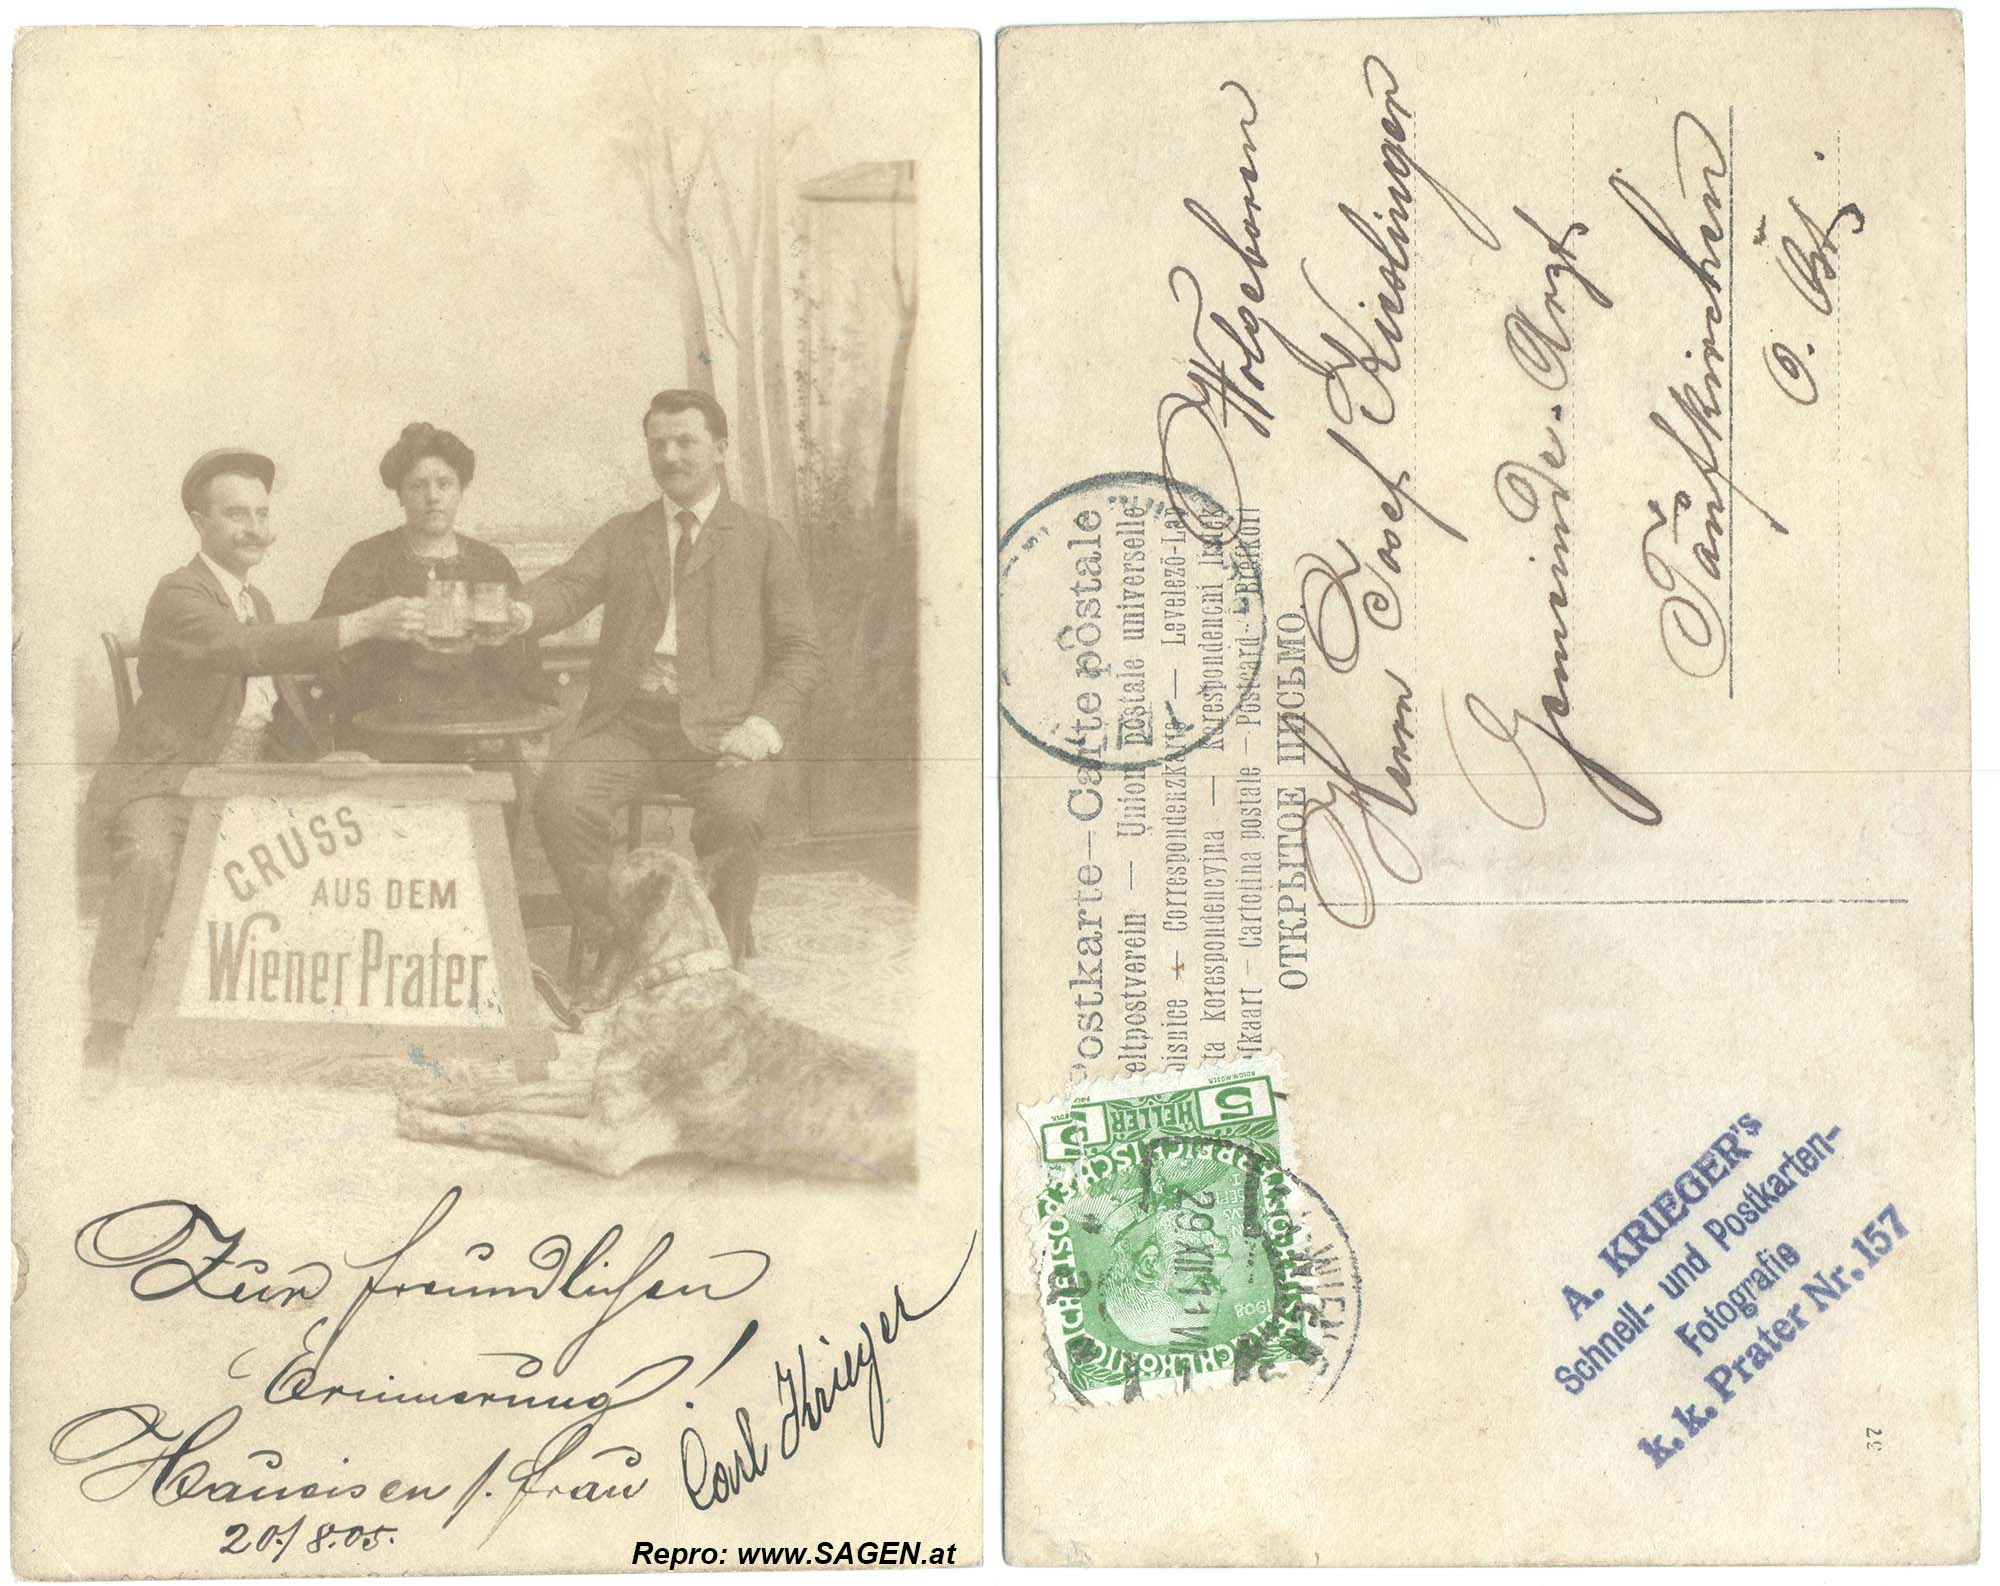 GRUSS
AUS DEM
Wiener Prater.
Zur freundlichen
Erinnerung!
Hauseisen s. frau
Carl Krieger
20./8.05.
Repro: www.SAGEN.at
Postkarte—Carte postale
eltpostverein — Union postale universelle
Correspondenzkarte — Levelező-Lap
ta korespondencyjna — Korespondencni listek
fkaart — Cartolina postale — Postcard — Brefkort
ОТКРЫТОЕ ПИСЬМО
Wolgeboren
Herrn Josef Kieslinger
Gemeinde-Arzt
Taufkirchen
O. Öst.
5 HELLER 5
1908
WIEN
29 XII 11
A. KRIEGER's
Schnell- und Postkarten-
Fotografie
k. k. Prater Nr. 157
37